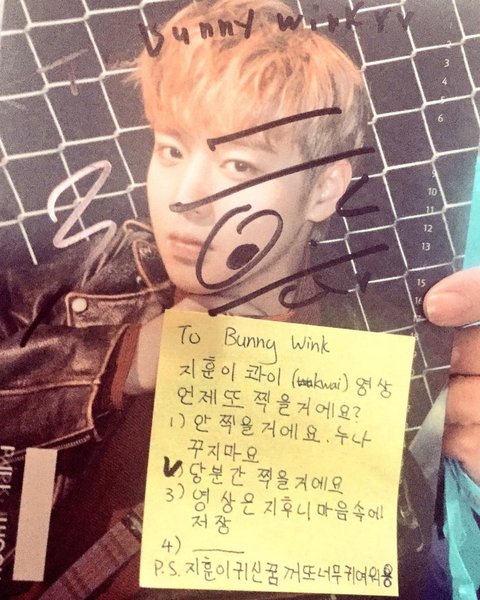 To Bunny wink rv
To Bunny Wink
지훈이 콰이 (kwai) 영상
언제 또 찍을거에요?
1) 안 찍을거에요. 누나
꾸지마요
✓ 당분간 찍을거에요
3) 영상은 지후니마음속에
저장
4) ____
P.S. 지훈이귀신꿈꺼또너무귀여워용
3
4
5
6
9
10
11
12
13
14
15
16